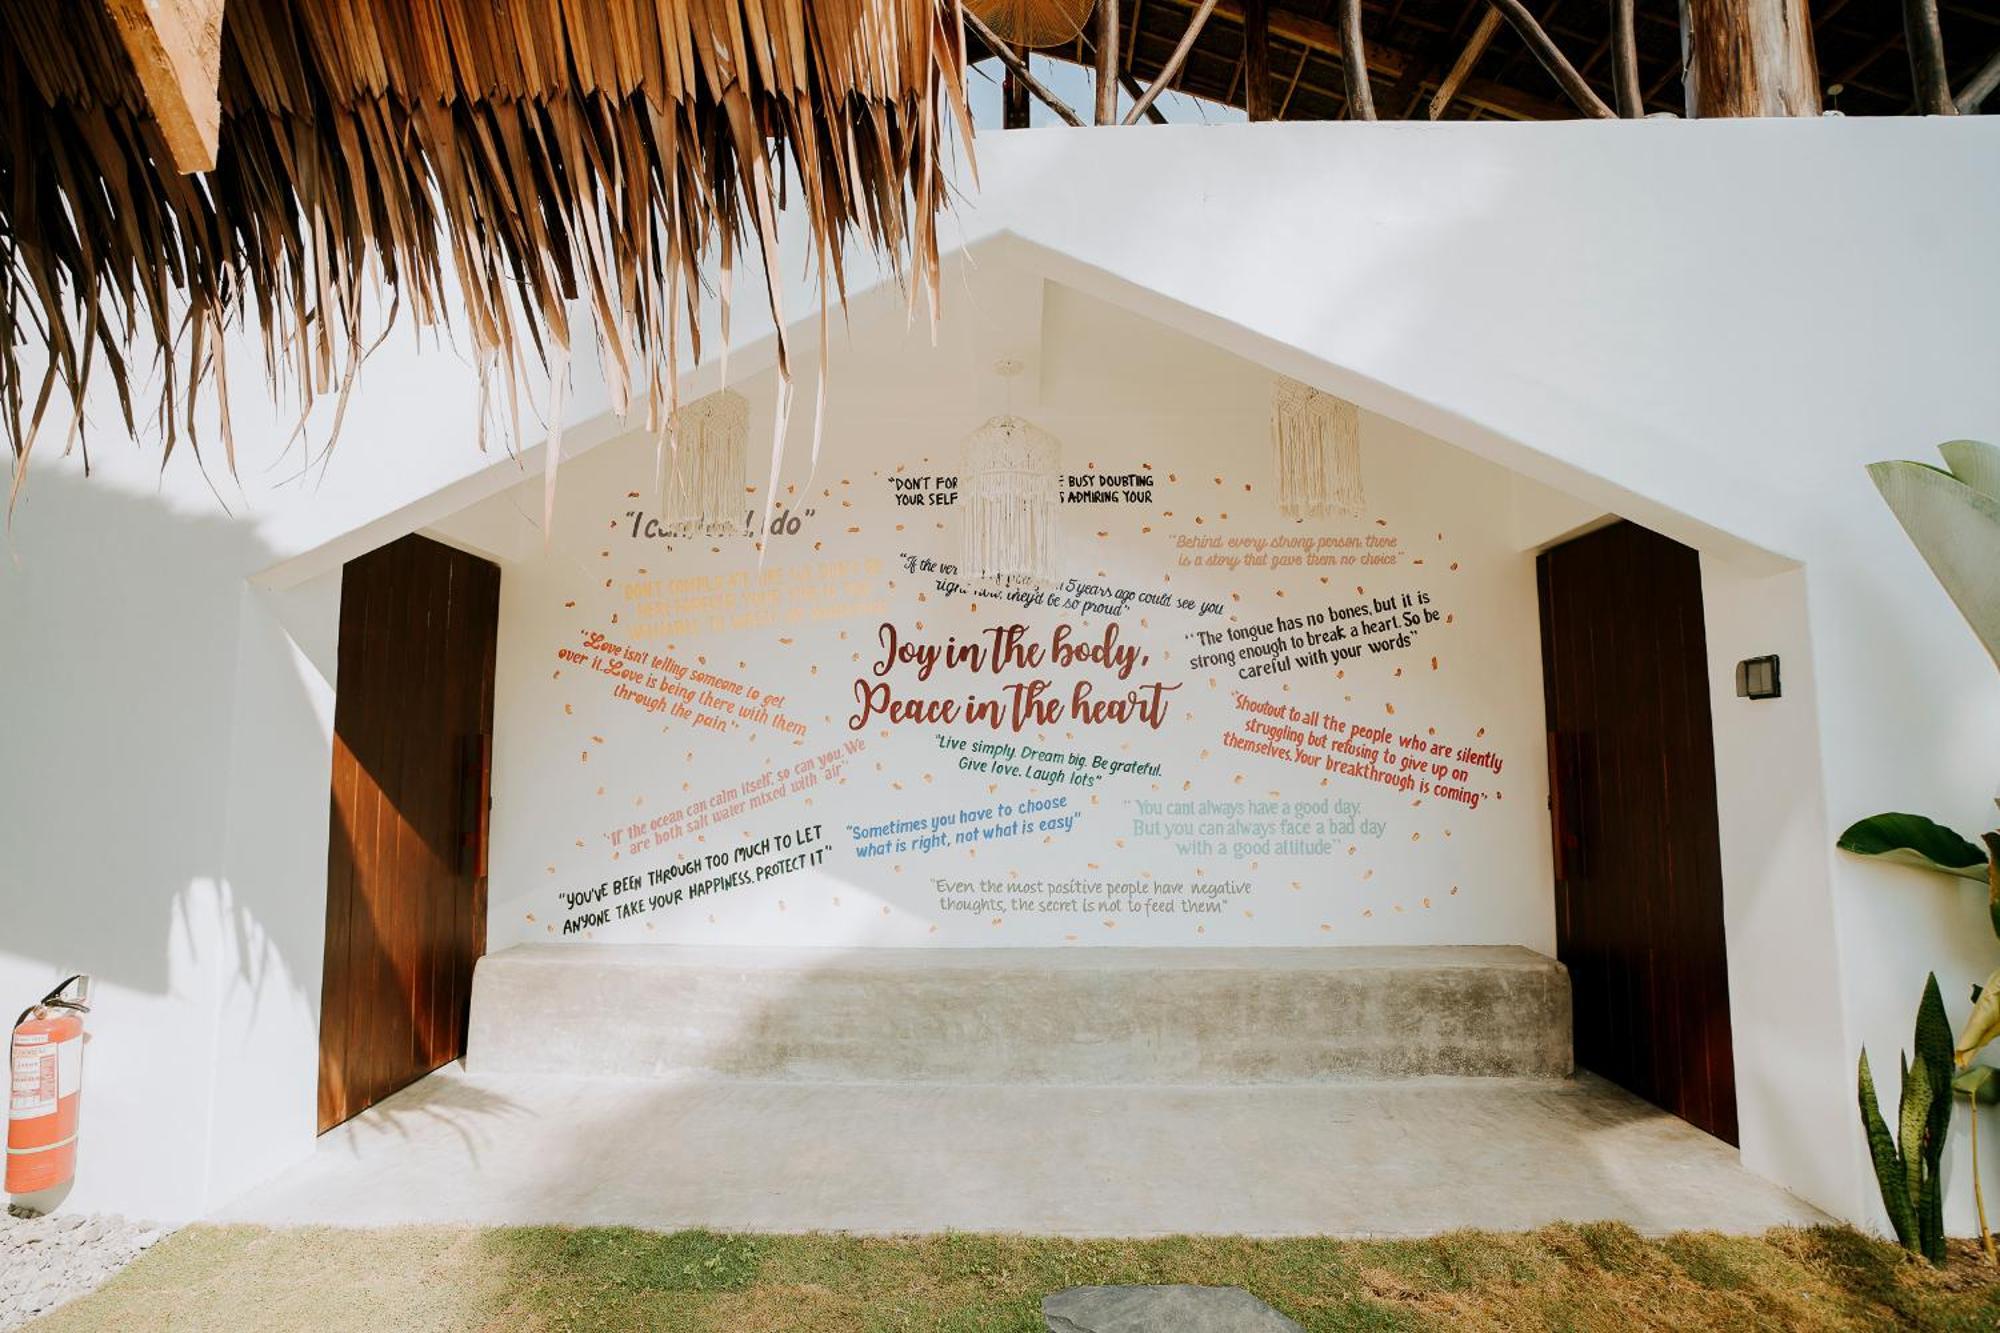 "DON'T FOR BUSY DOUBTING
YOUR SELF ADMIRING YOUR
"I do"
"Behind every strong person, there
is a story that gave them no choice"
"If the 5 years ago could see you
right now, they'd be so proud"
DON'T COMPLICATE
"The tongue has no bones, but it is
strong enough to break a heart. So be
careful with your words"
"Love isn't telling someone to get
over it. Love is being there with them
through the pain."
Joy in the body,
Peace in the heart
"Shoutout to all the people who are silently
struggling but refusing to give up on
themselves. Your breakthrough is coming"
"Live simply. Dream big. Be grateful.
Give love. Laugh lots"
"If the ocean can calm itself, so can you. We
are both salt water mixed with air"
"Sometimes you have to choose
what is right, not what is easy"
"You cant always have a good day.
But you can always face a bad day
with a good attitude"
"YOU'VE BEEN THROUGH TOO MUCH TO LET
ANYONE TAKE YOUR HAPPINESS. PROTECT IT"
"Even the most positive people have negative
thoughts, the secret is not to feed them"